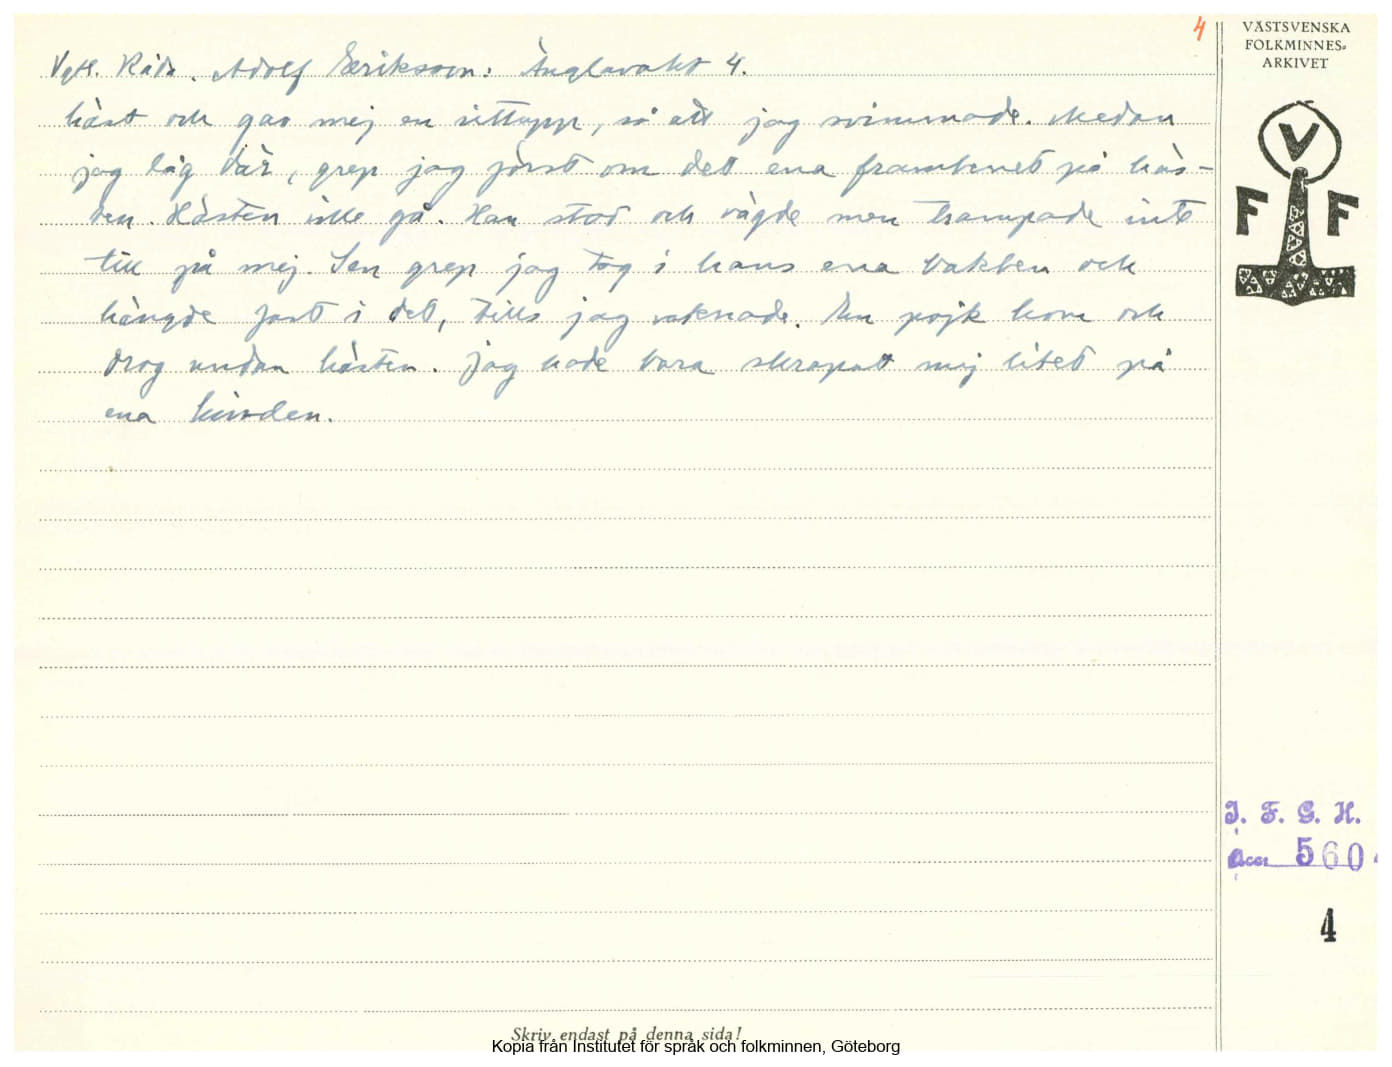 4
VÄSTSVENSKA
FOLKMINNES-
ARKIVET
V
F F
Vgtl. Råda. Adolf Eriksson: Änglavakt 4.
häst och gav mej en sittupp, så att jag svimmade. Medan
jag låg där, grep jag först om det ena frambenet på häs-
ten. Hästen ville gå. Han stod och vägde men trampade inte
till på mej. Sen grep jag tag i hans ena bakben och
hängde fast i det, tills jag vaknade. En pojk kom och
drog undan hästen. Jag hade bara skrapat mej litet på
ena kinden.
I. F. G. H.
Acc. 560
4
Skriv endast på denna sida!
Kopia från Institutet för språk och folkminnen, Göteborg